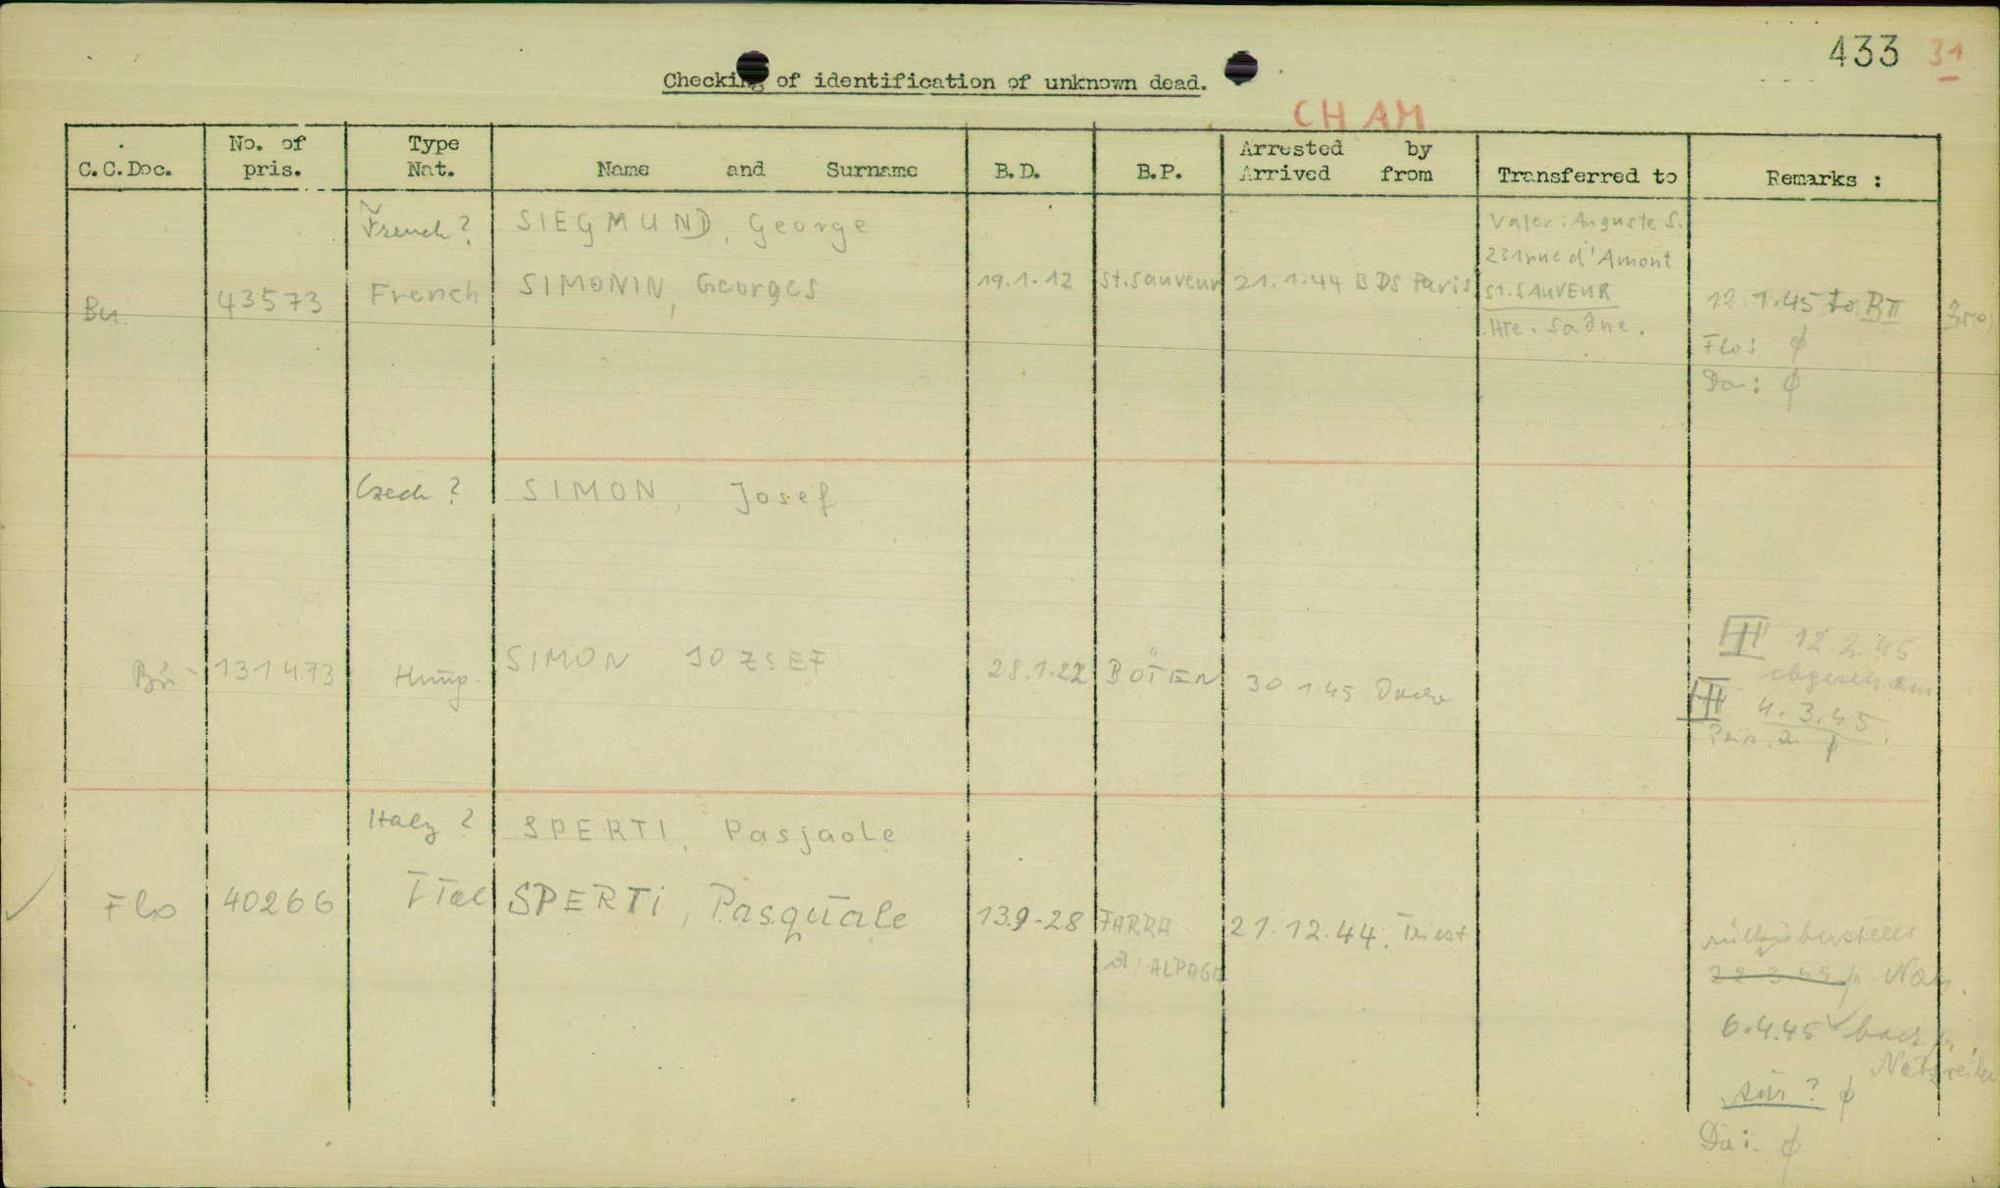 433 31
Checking of identification of unknown dead.
CHAM
C.C.Doc. No. of pris. Type Nat. Name and Surname B.D. B.P. Arrested by Arrived from Transferred to Remarks :
French? SIEGMUND, George Vater: Auguste S.
231 rue d'Amont
Bu. 43573 French SIMONIN, Georges 19.1.12 St.Sauveur 21.1.44 BDS Paris St.SAUVEUR 12.1.45 to BII
Hte. Saône. Flo: ϕ
Da: ϕ
Czech? SIMON, Josef
Bu - 131473 Hung. SIMON JOZSEF 28.1.22 BÖTEN 30.1.45 III 12.2.45
III 4.3.45
ϕ
Italy? SPERTI, Pasjaole
Flo 40266 Ital SPERTi, Pasquale 13.9-28 FARRA 21.12.44. Triest
d'ALPAGO rücküberstellt
Nat.
6.4.45
Natzweiler
ϕ
Da: ϕ